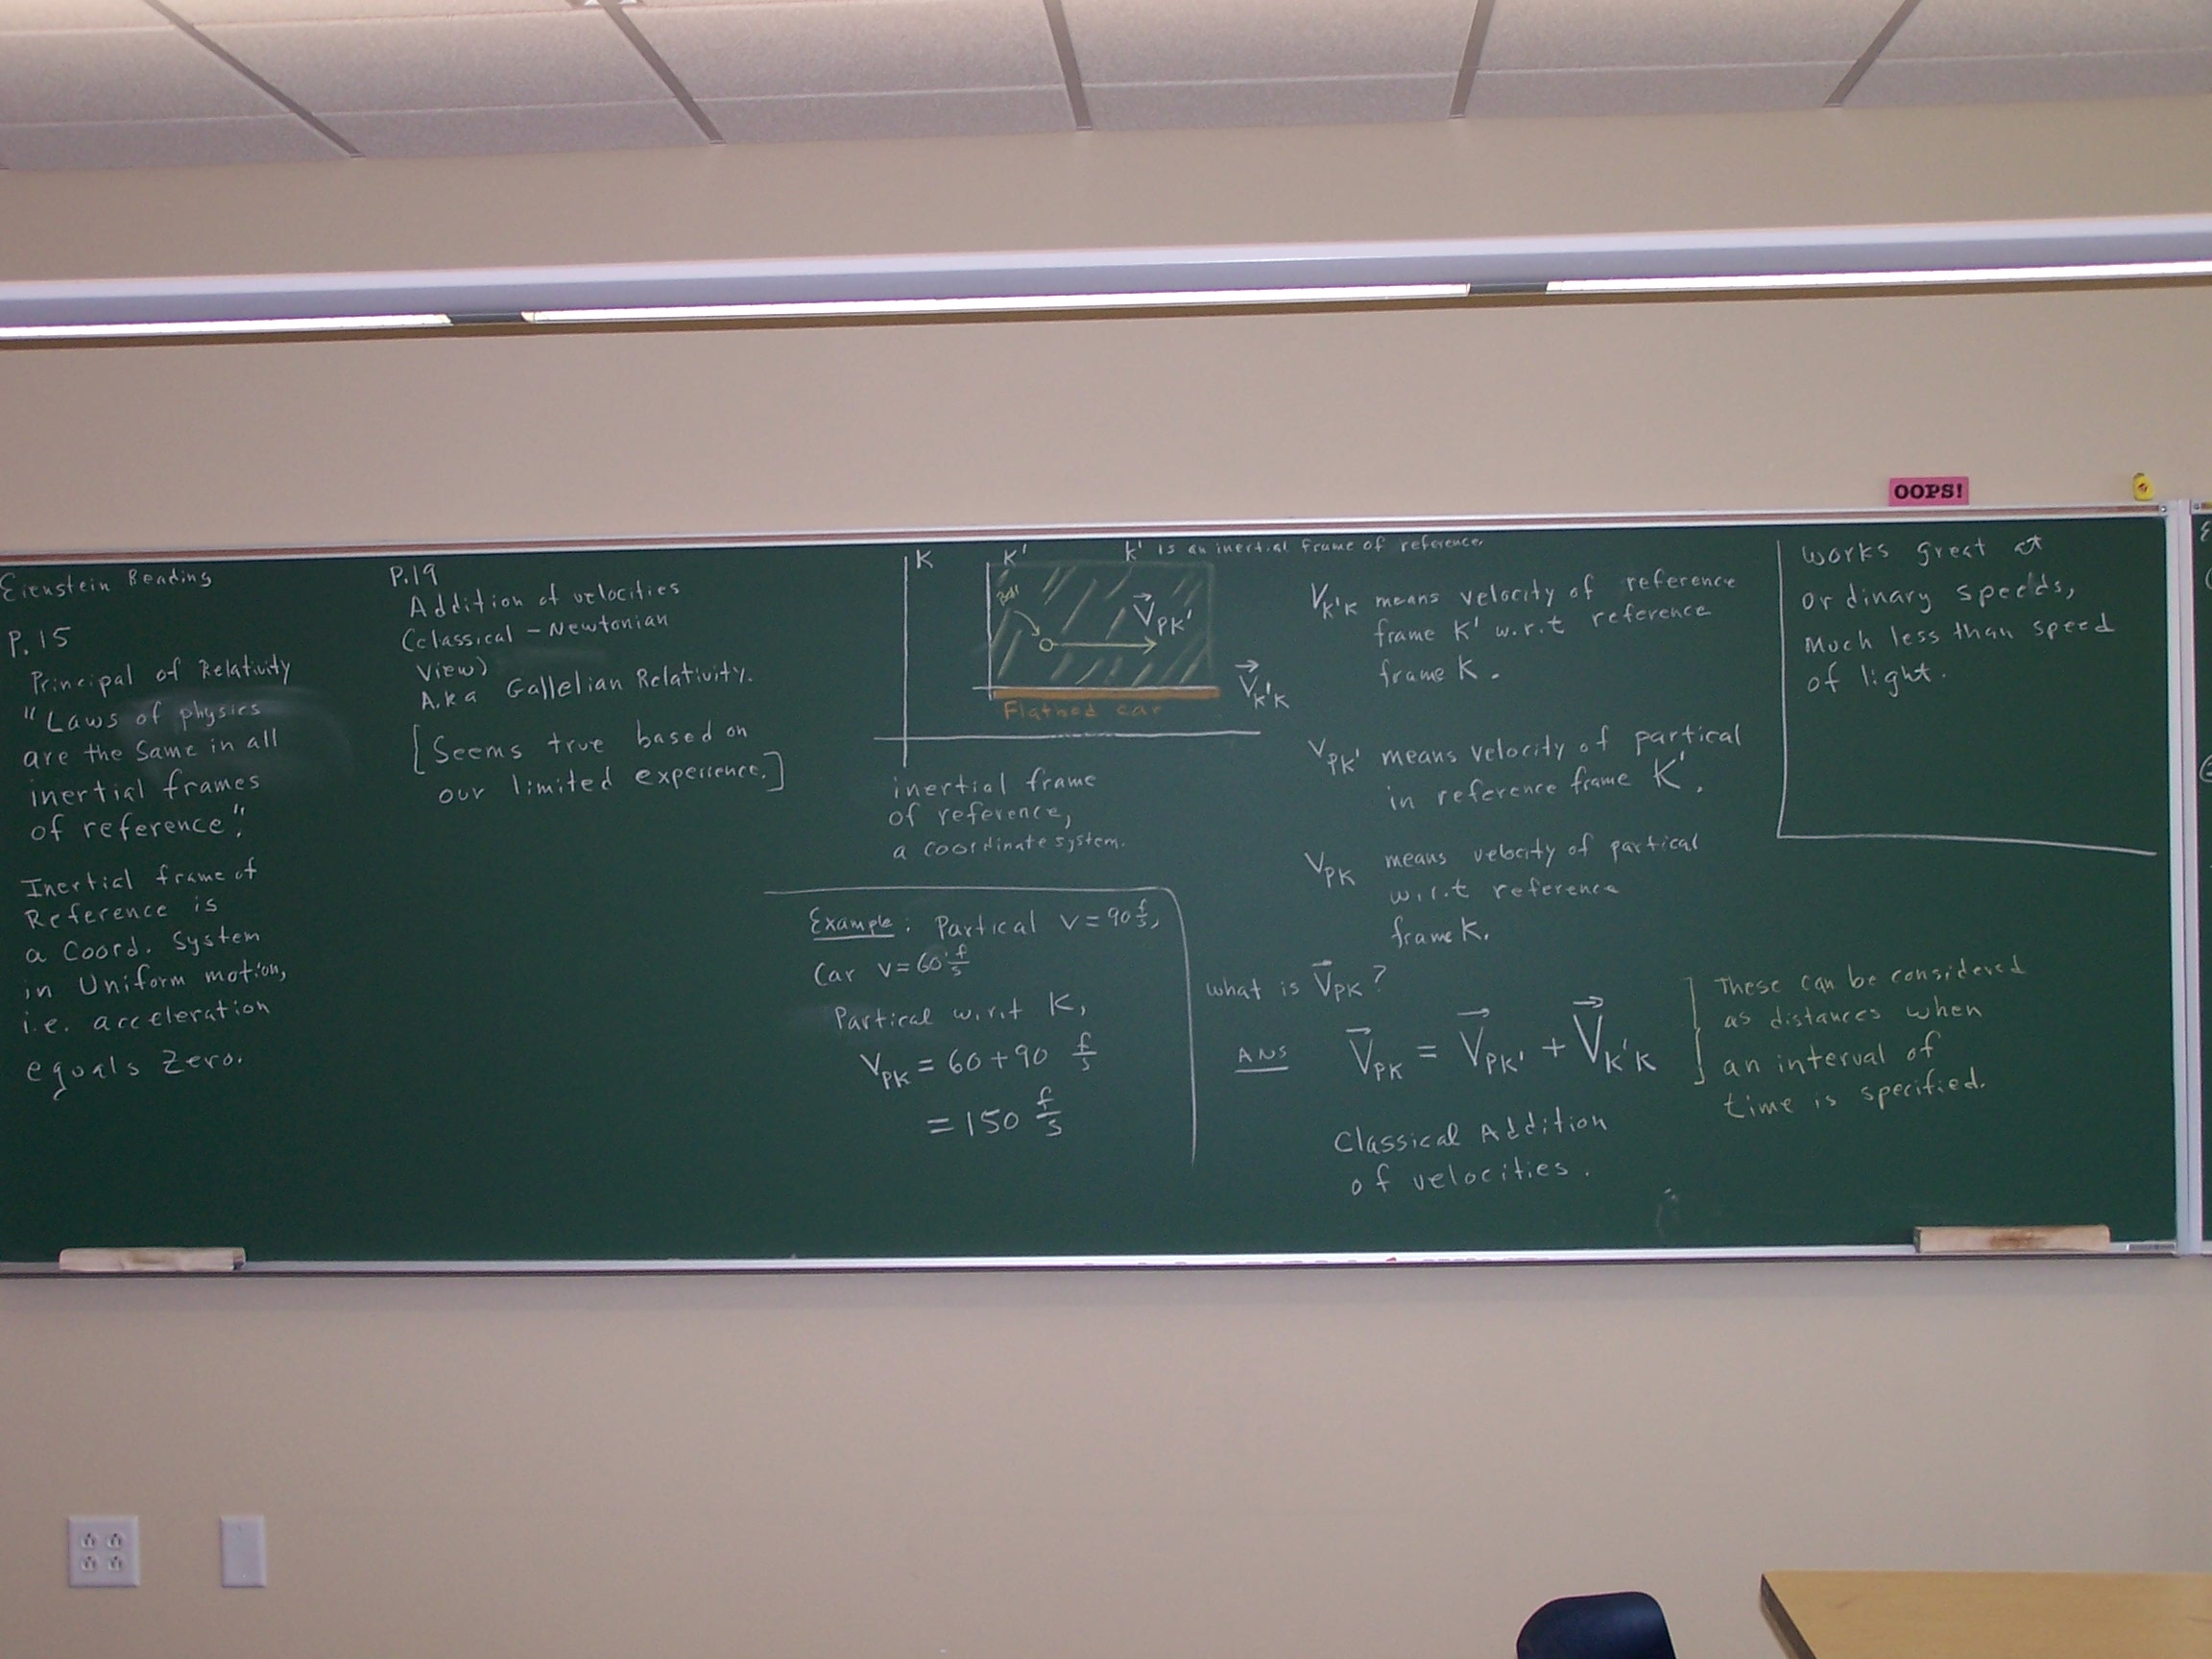 OOPS!
Eienstein Reading
P.15
Principal of Relativity
"Laws of physics
are the same in all
inertial frames
of reference".
Inertial frame of
Reference is
a Coord. System
in Uniform motion,
i.e. acceleration
equals Zero.
P.19
Addition of velocities
(classical - Newtonian
View)
A.k.a Gallelian Relativity.
[Seems true based on
our limited experience.]
K
K'
K' is an inertial frame of reference.
Ball
V⃗PK'
V⃗K'K
Flatbed car
inertial frame
of reference,
a coordinate system.
Example: Partical v = 90 f/s,
Car v = 60 f/s
Partical w.r.t K,
VPK = 60 + 90 f/s
= 150 f/s
VK'K means velocity of reference
frame K' w.r.t reference
frame K.
VPK' means velocity of partical
in reference frame K'.
VPK means velocity of partical
w.r.t reference
frame K.
what is V⃗PK?
ANS V⃗PK = V⃗PK' + V⃗K'K
Classical Addition
of velocities.
These can be considered
as distances when
an interval of
time is specified.
works great at
ordinary speeds,
Much less than speed
of light.